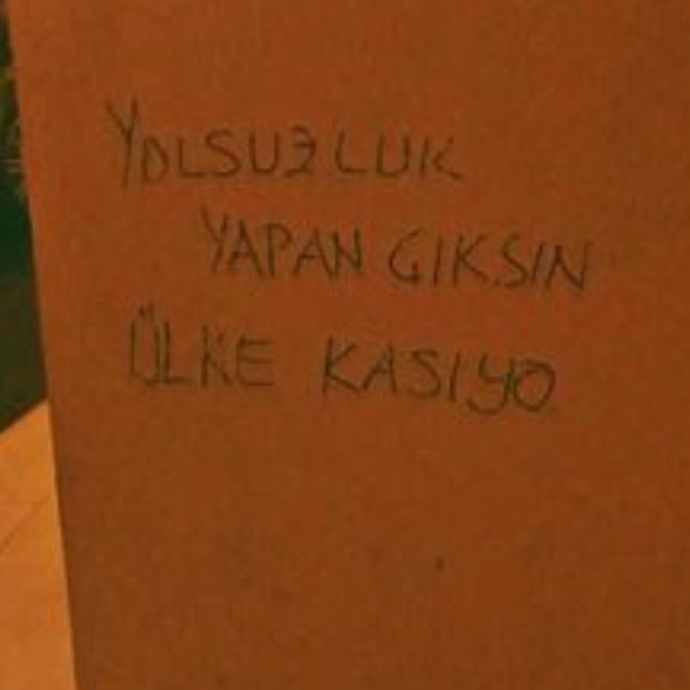 YOLSUZLUK
YAPAN ÇIKSIN
ÜLKE KASIYO